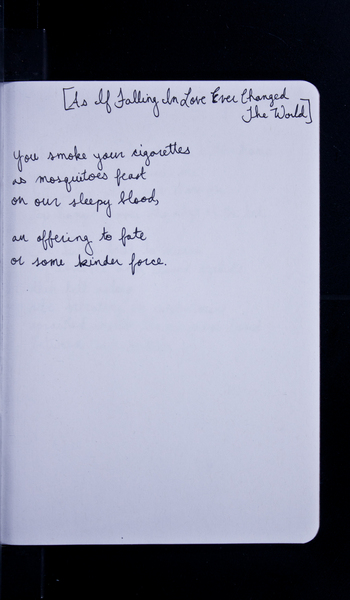 [As If Falling In Love Ever Changed
The World]
You smoke your cigarettes
as mosquitoes feast
on our sleepy blood,
an offering to fate
or some kinder force.